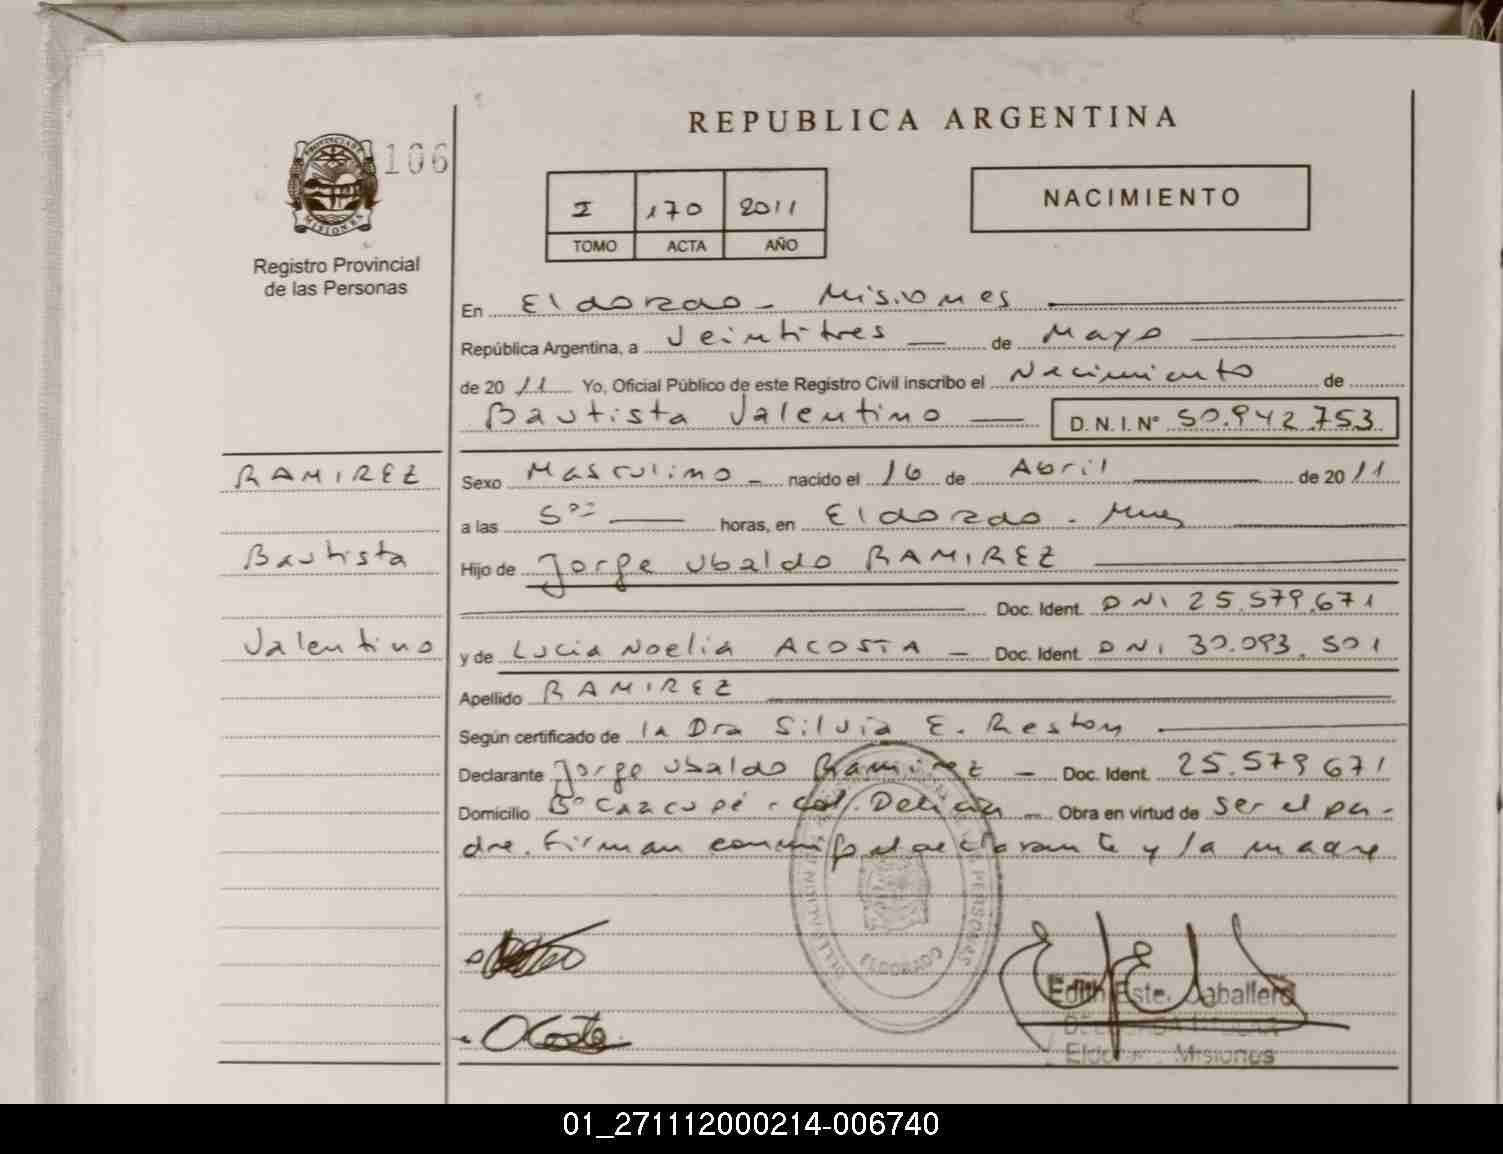 REPUBLICA ARGENTINA
PROVINCIA DE MISIONES
106
I 170 2011
TOMO ACTA AÑO
NACIMIENTO
Registro Provincial
de las Personas
En Eldorado - Misiones
República Argentina, a Veintitres de Mayo
de 2011 Yo, Oficial Público de este Registro Civil inscribo el Nacimiento de
Bautista Valentino D. N. I. Nº 50.942.753
RAMIREZ
Sexo Masculino - nacido el 16 de Abril de 2011
a las 5º² horas, en Eldorado - Mnes
Bautista
Hijo de Jorge Ubaldo RAMIREZ
Doc. Ident. DNI 25.579.671
Valentino
y de Lucia Noelia ACOSTA - Doc. Ident. DNI 30.093.501
Apellido RAMIREZ
Según certificado de la Dra Silvia E. Reston
Declarante Jorge Ubaldo Ramirez - Doc. Ident. 25.579.671
Domicilio Bº Caacupé - Col. Delicia - Obra en virtud de ser el pa-
dre. Firman conmigo el declarante y la madre
DE LAS PERSONAS
ELDORADO
Acosta
Edith Este. Caballero
Eldorado Misiones
01_271112000214-006740